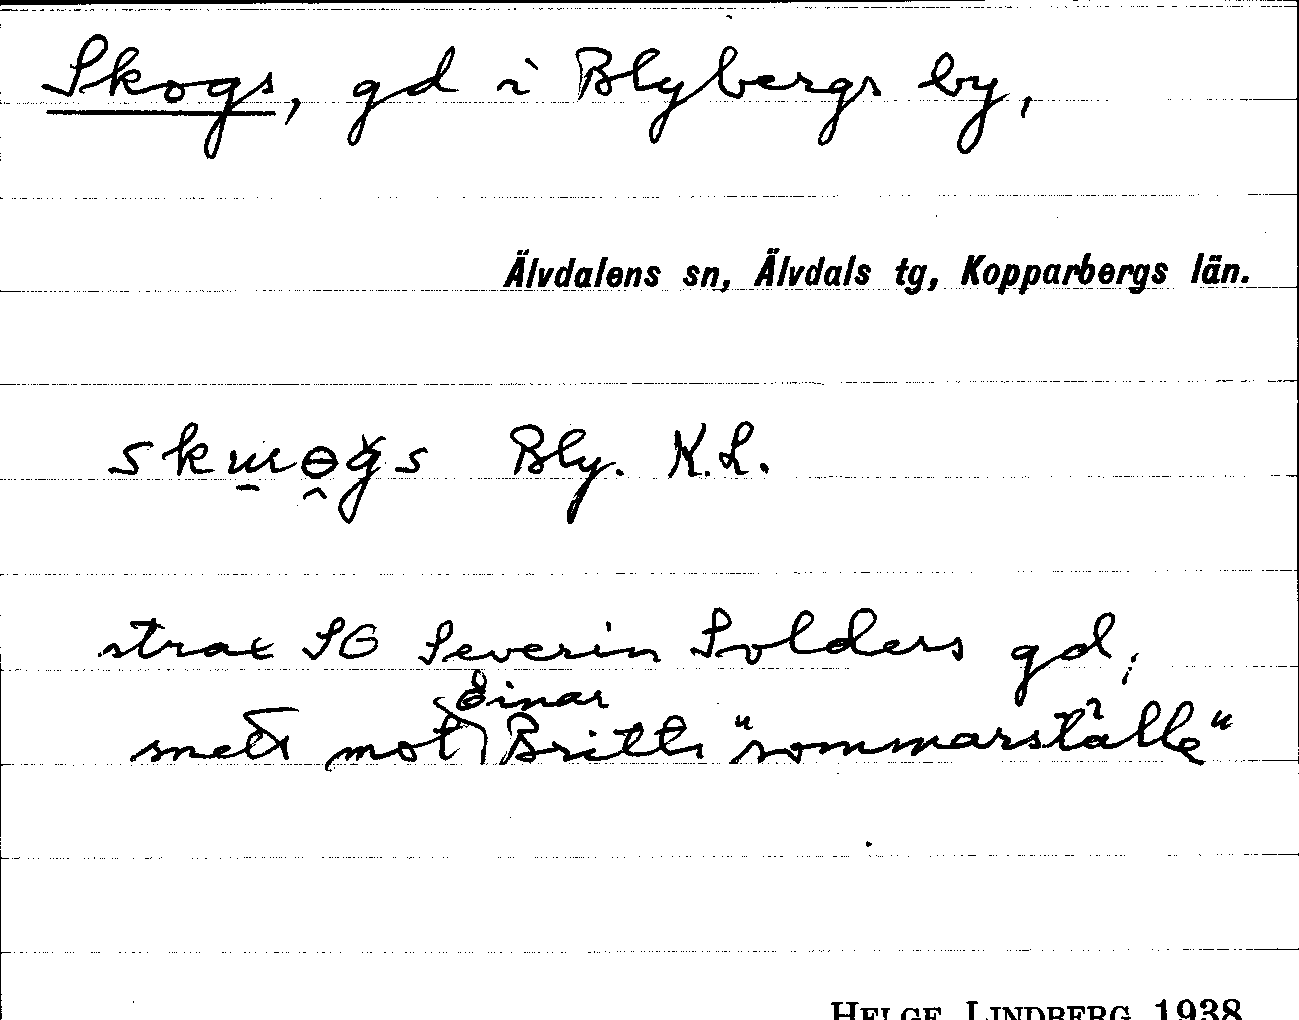 Skogs, gd i Blybergs by,
Älvdalens sn, Älvdals tg, Kopparbergs län.
Bly. K.L.
strax SO Severin Solders gd;
snett mot Einar Britts "sommarställe"
HELGE LINDBERG 1938